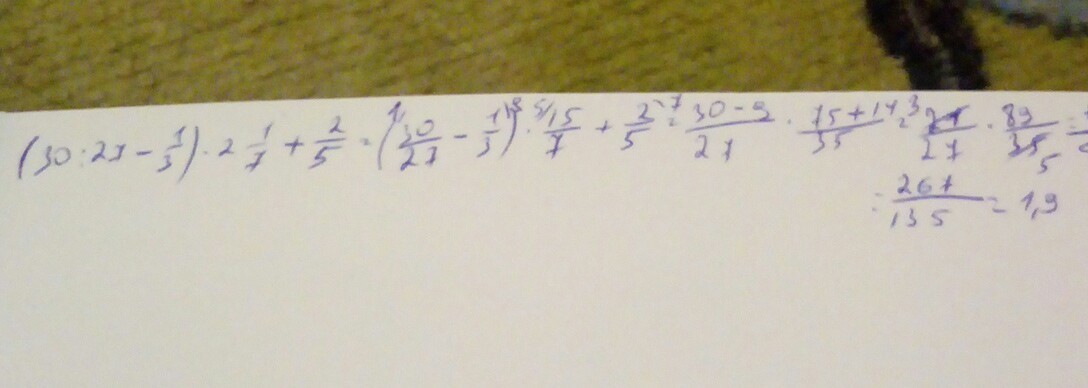 (30:27-1/3)·2 1/7+2/5=(30/27-1/3)·15/7+2/5=30-9/27·75+14/35=21/27·89/35=
=267/135=1,9